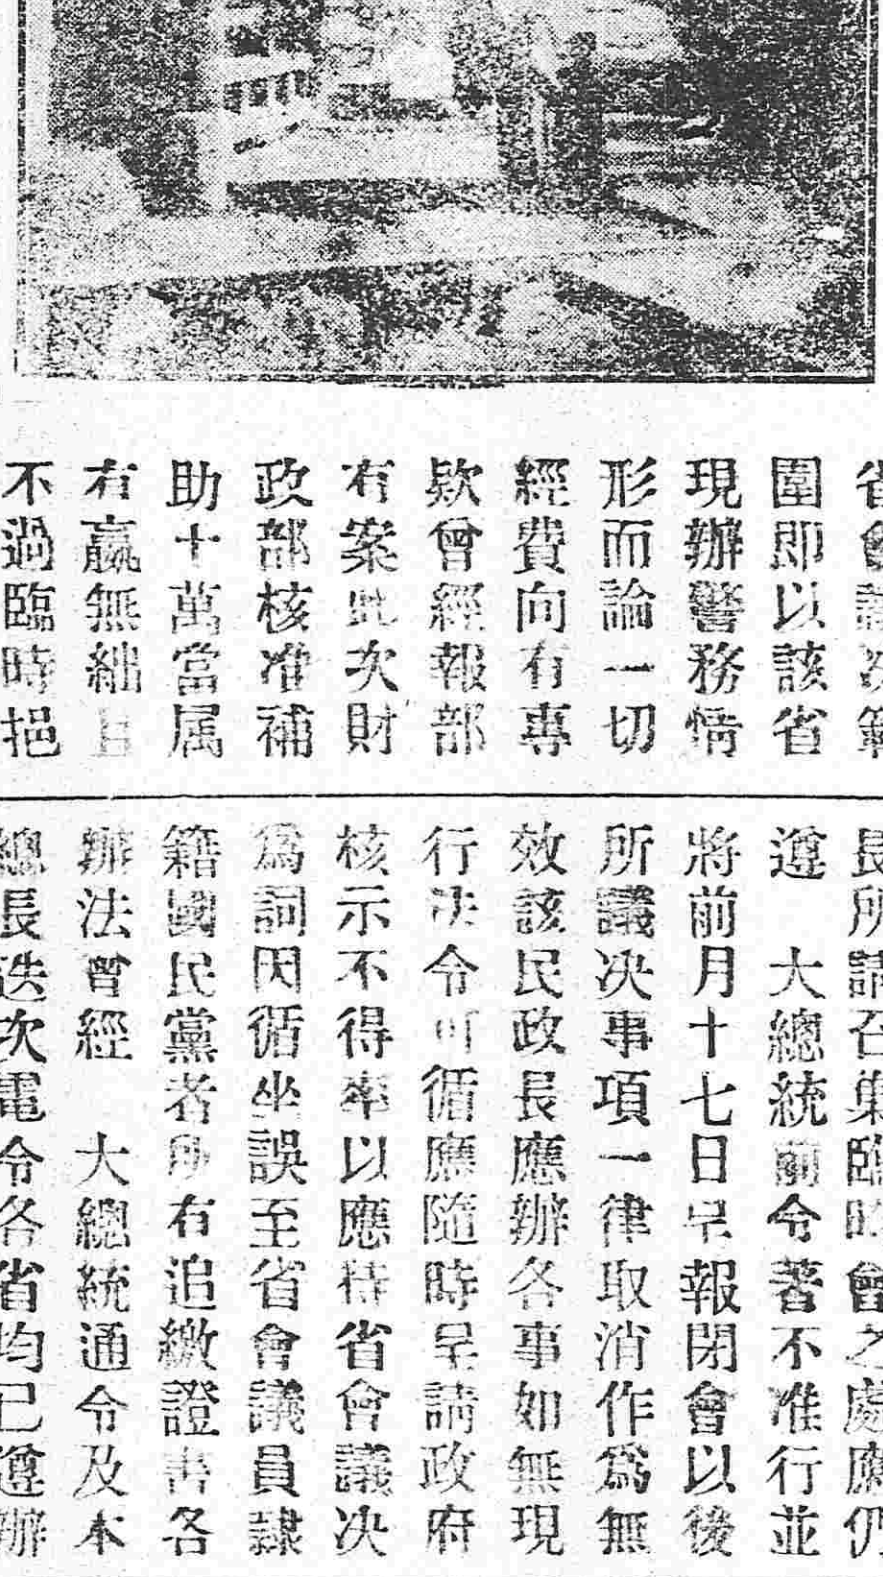 省會議决範
圍即以該省
現辦警務情
形而論一切
經費向有專
欵曾經報部
有案此次財
政部核准補
助十萬當属
有嬴無絀且
不過臨時挹
長所請召集臨時會之處應仍
遵　大總統前令著不准行並
將前月十七日呈報閉會以後
所議决事項一律取消作爲無
效該民政長應辦各事如無現
行决令可循應隨時呈請政府
核示不得率以應待省會議决
爲詞因循坐誤至省會議員隷
籍國民黨者所有追繳證書各
辦法曾經　大總統通令及本
總長迭次電令各省均已遵辦